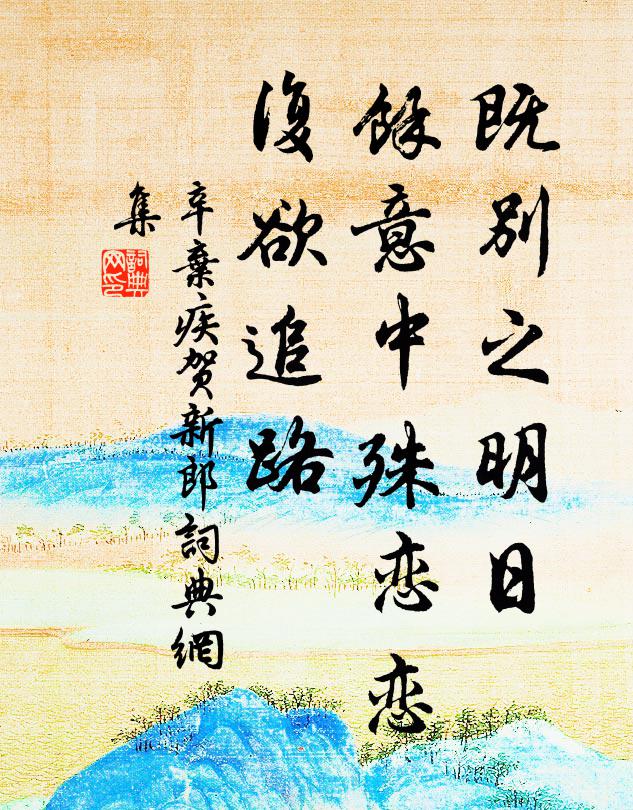 既别之明日
餘意中殊恋恋
復欲追路
辛棄疾贺新郎詞典網
集
詞典
网印